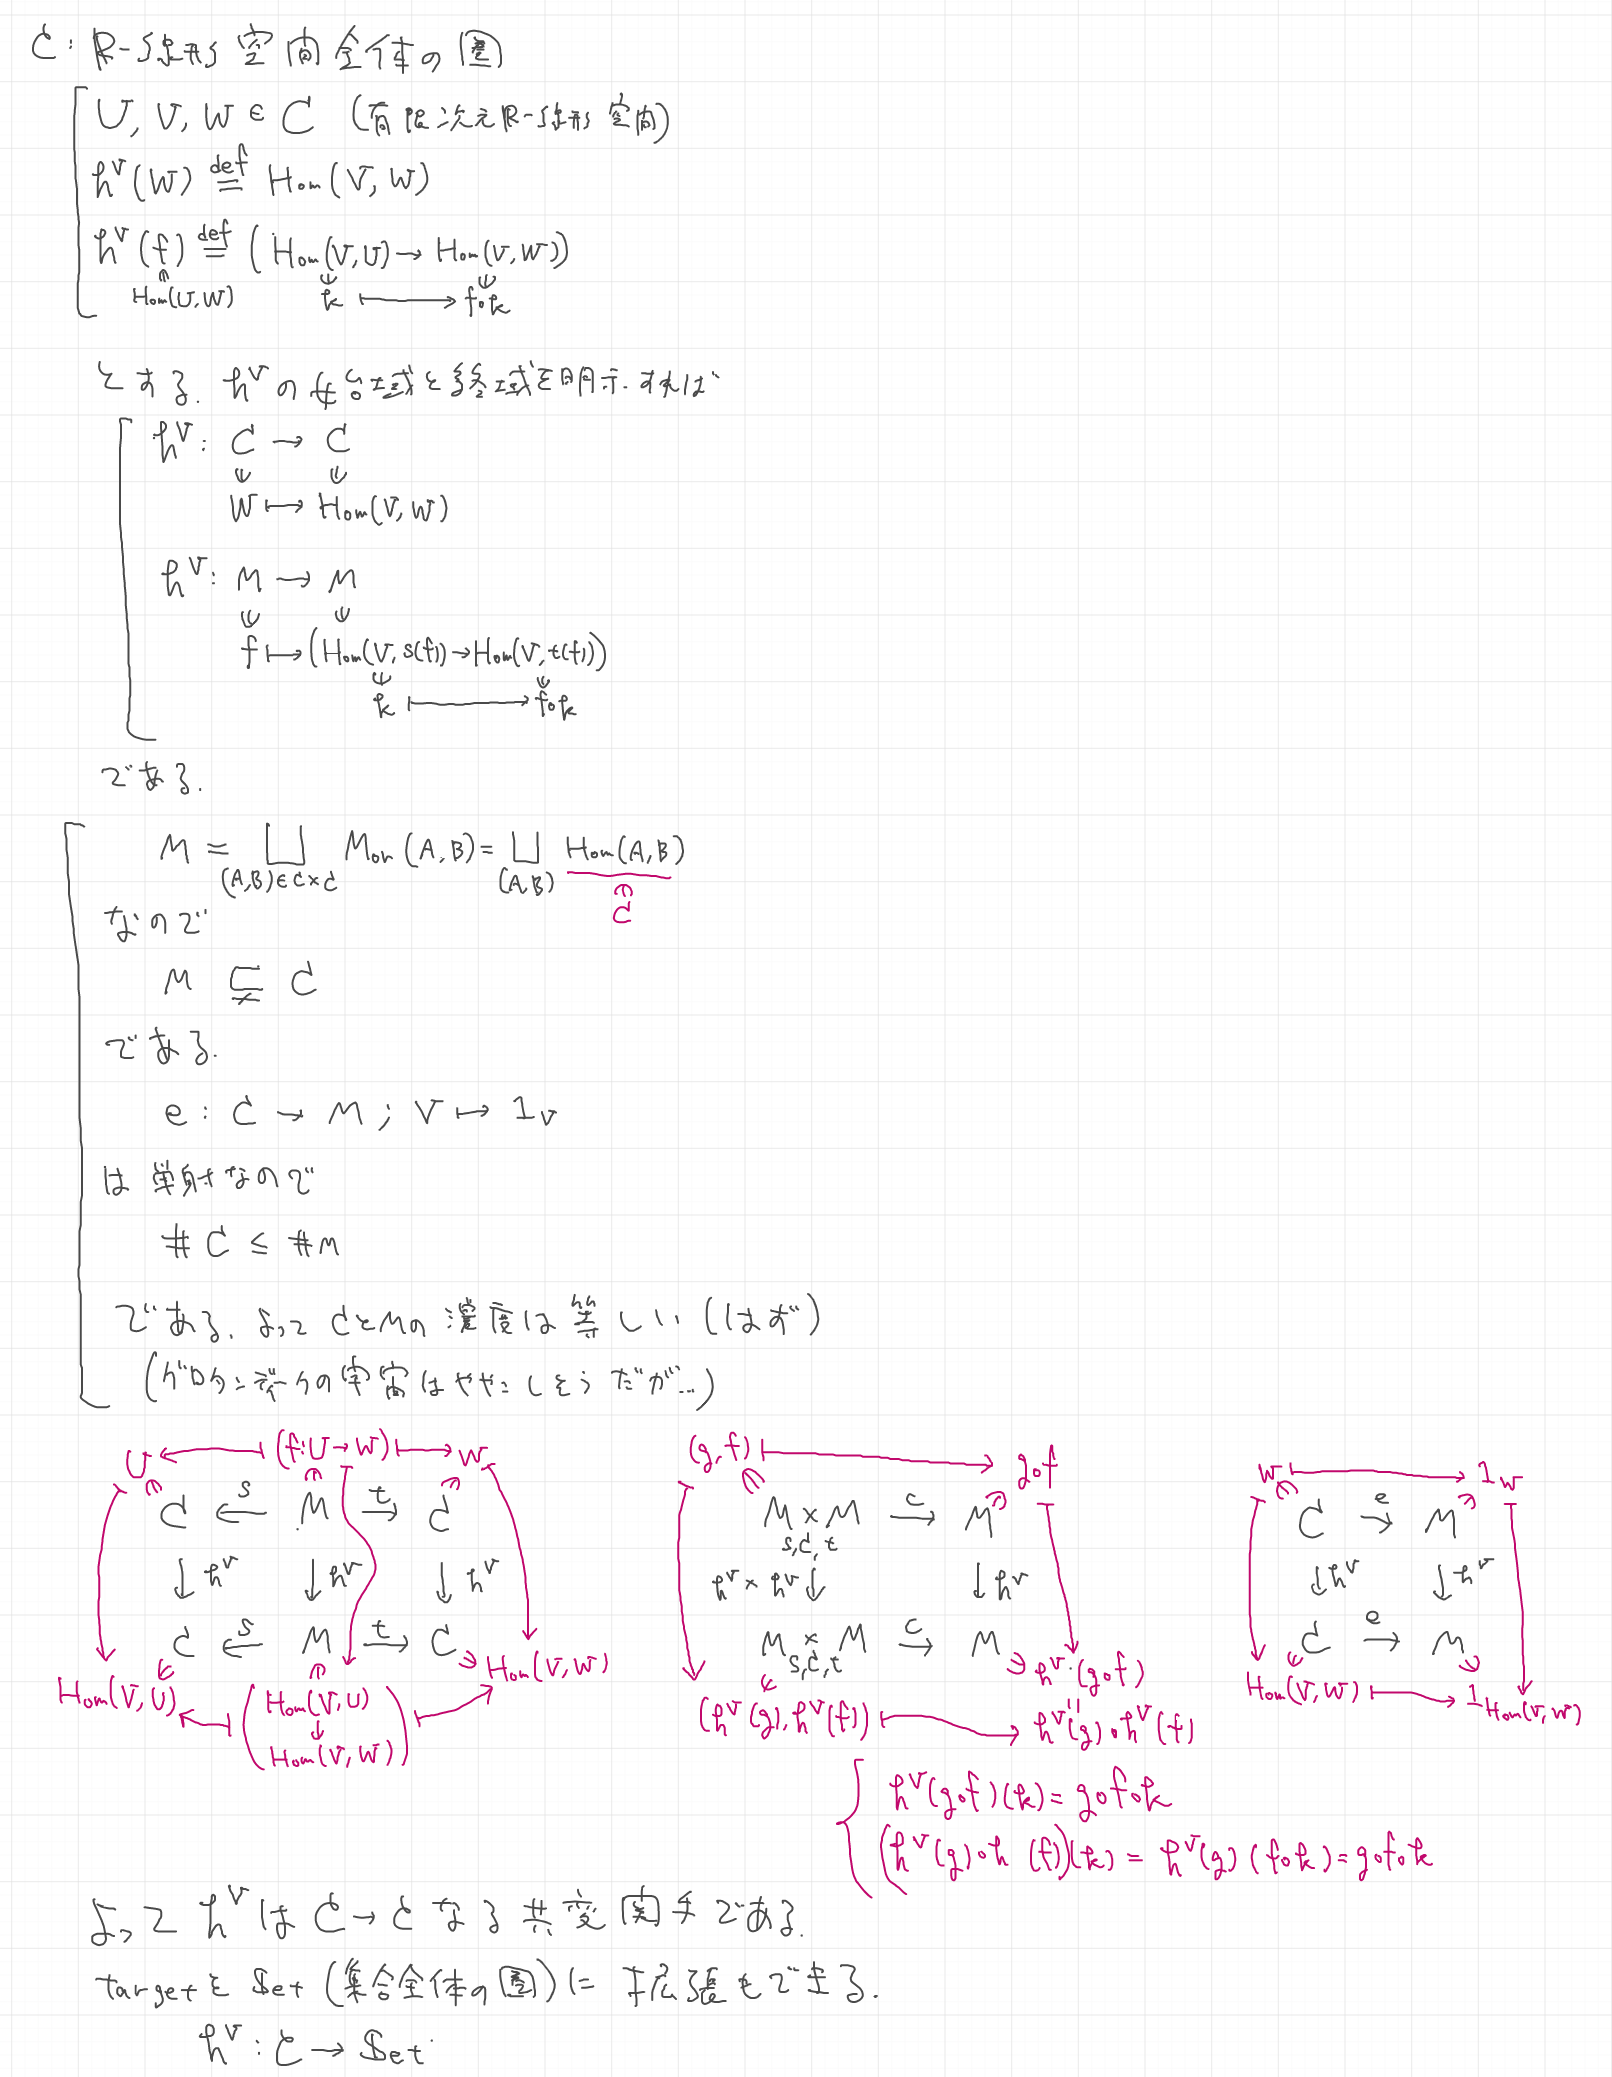 C: R-線形空間全体の圏
U, V, W ∈ C (有限次元R-線形空間)
h^V(W) def= Hom(V, W)
h^V(f) def= (Hom(V,U) → Hom(V,W))
Hom(U,W) k ⟼ f∘k
とする. h^Vの始域と終域を明示すれば
h^V: C → C
W ⟼ Hom(V,W)
h^V: M → M
f ⟼ (Hom(V, s(f)) → Hom(V, t(f)))
k ⟼ f∘k
である.
M = ⊔ Mor(A,B) = ⊔ Hom(A,B)
(A,B)∈C×C (A,B) C
なので
M ⊊ C
である.
e: C → M ; V ⟼ 1_V
は単射なので
# C ≤ # M
である. よってCとMの濃度は等しい (はず)
(グロタンディークの宇宙はややこしそうだが...)
U ⟻ (f:U→W) ⟼ W
C ←s M →t C
↓h^V ↓h^V ↓h^V
C ←s M →t C
Hom(V,U) ⟻ (Hom(V,U) ↓ Hom(V,W)) ⟼ Hom(V,W)
(g,f) ⟼ g∘f
M × M →c M
s,C,t
h^V × h^V ↓ ↓h^V
M × M →c M
s,C,t
h^V(g∘f)
(h^V(g), h^V(f)) ⟼ h^V(g)∘h^V(f)
W ⟼ 1_W
C →e M
↓h^V ↓h^V
C →e M
Hom(V,W) ⟼ 1_Hom(V,W)
h^V(g∘f)(k) = g∘f∘k
(h^V(g)∘h (f))(k) = h^V(g)(f∘k) = g∘f∘k
よって h^V は C→C なる共変関手である.
targetを Set (集合全体の圏)に拡張もできる.
h^V: C → Set